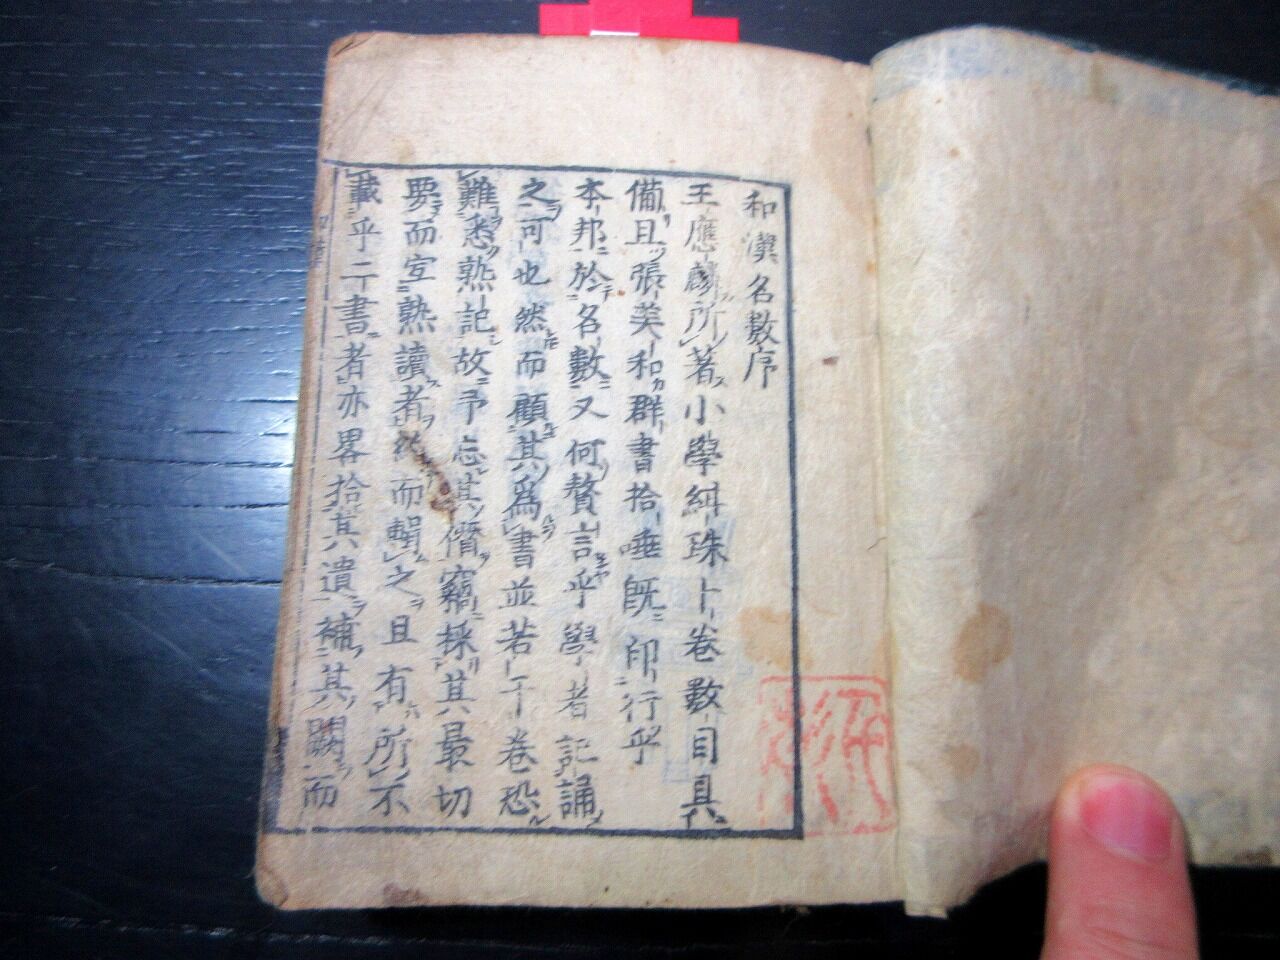 和漢名數序
王應麟所著小學紺珠十卷數目具
備且張美和群書拾唾既印行乎
本邦於名數又何贅言乎學者記誦
之可也然而顧其爲書並若干卷恐
難悉熟記故予忘其僭竊採其最切
要而宜熟讀者然而輯之且有所不
載乎二書者亦畧拾其遺補其闕而